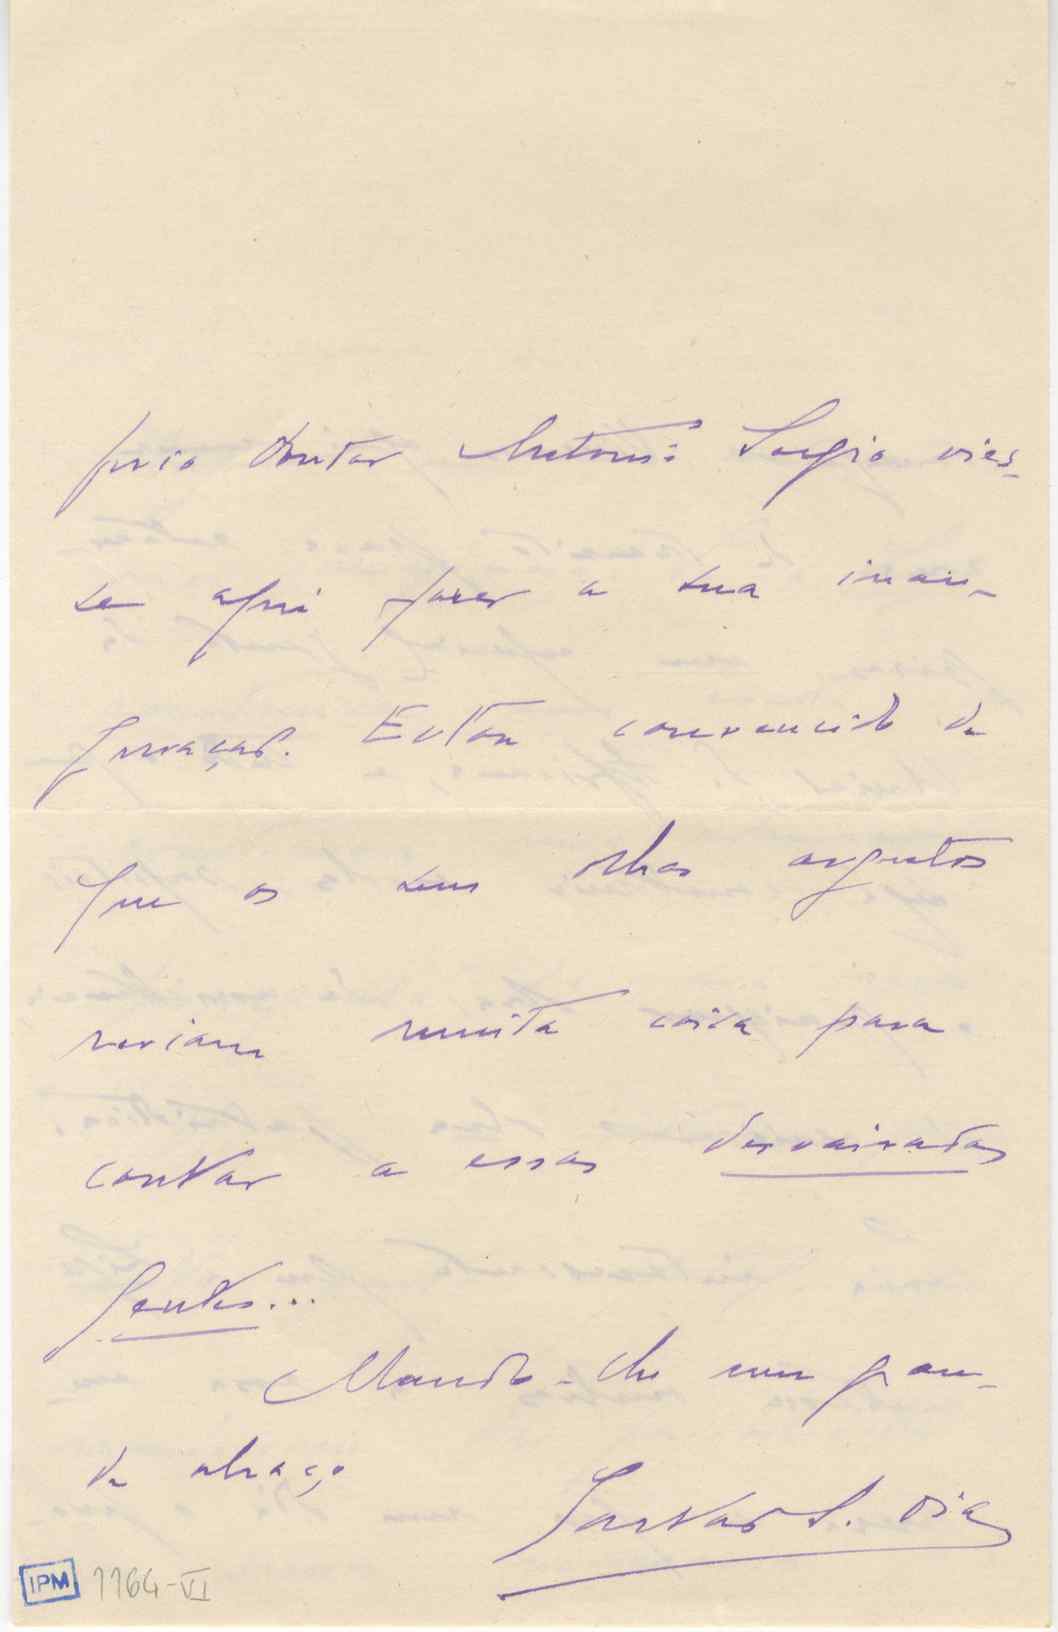 prio doutor Antonio Sergio vies-
se aqui fazer a sua inau-
guração. Estou convencido de
que os seus olhos argutos
veriam muita coisa para
contar a essas desvairadas
gentes...
Mando-lhe um gran-
de abraço
Gastão S. Dias
IPM 1164-VI